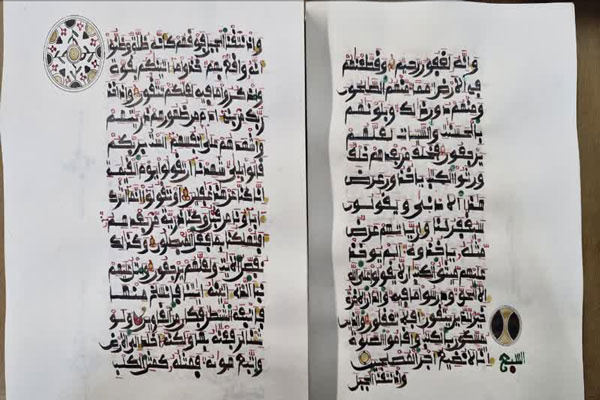 وإنه لغفور رحيم وقطعنهم
في الأرض أمما منهم الصلحون
ومنهم دون ذلك وبلونهم
بالحسنت والسيئات لعلهم
يرجعون فخلف من بعدهم خلف
ورثوا الكتب يأخذون عرض
هذا الأدنى ويقولون
سيغفر لنا وإن يأتهم عرض
مثله يأخذوه ألم يؤخذ
عليهم ميثق الكتب ألا يقولوا على الله
إلا الحق ودرسوا ما فيه والدار الآخرة
خير للذين يتقون أفلا تعقلون والذين
يمسكون بالكتب وأقاموا الصلوة
إنا لا نضيع أجر المصلحين
السبع
وإذ نتقنا الجبل
وإذ نتقنا الجبل فوقهم كأنه ظلة وظنوا
أنه واقع بهم خذوا ما ءاتينكم بقوة
واذكروا ما فيه لعلكم تتقون وإذ أخذ
ربك من بني ءادم من ظهورهم ذريتهم
وأشهدهم على أنفسهم ألست بربكم
قالوا بلى شهدنا أن تقولوا يوم القيمة
إنا كنا عن هذا غفلين أو تقولوا إنما أشرك
ءاباؤنا من قبل وكنا ذرية من بعدهم
أفتهلكنا بما فعل المبطلون وكذلك
نفصل الأيت ولعلهم يرجعون واتل عليهم
نبأ الذي ءاتينه ءايتنا فانسلخ منها
فأتبعه الشيطن فكان من الغاوين ولو
شئنا لرفعنه بها ولكنه أخلد إلى الأرض
واتبع هويه فمثله كمثل الكلب